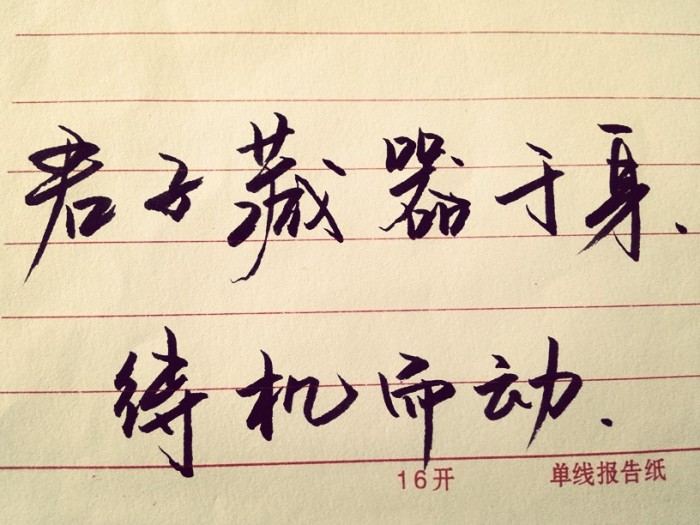 君子藏器于身、
待机而动.
16开 单线报告纸